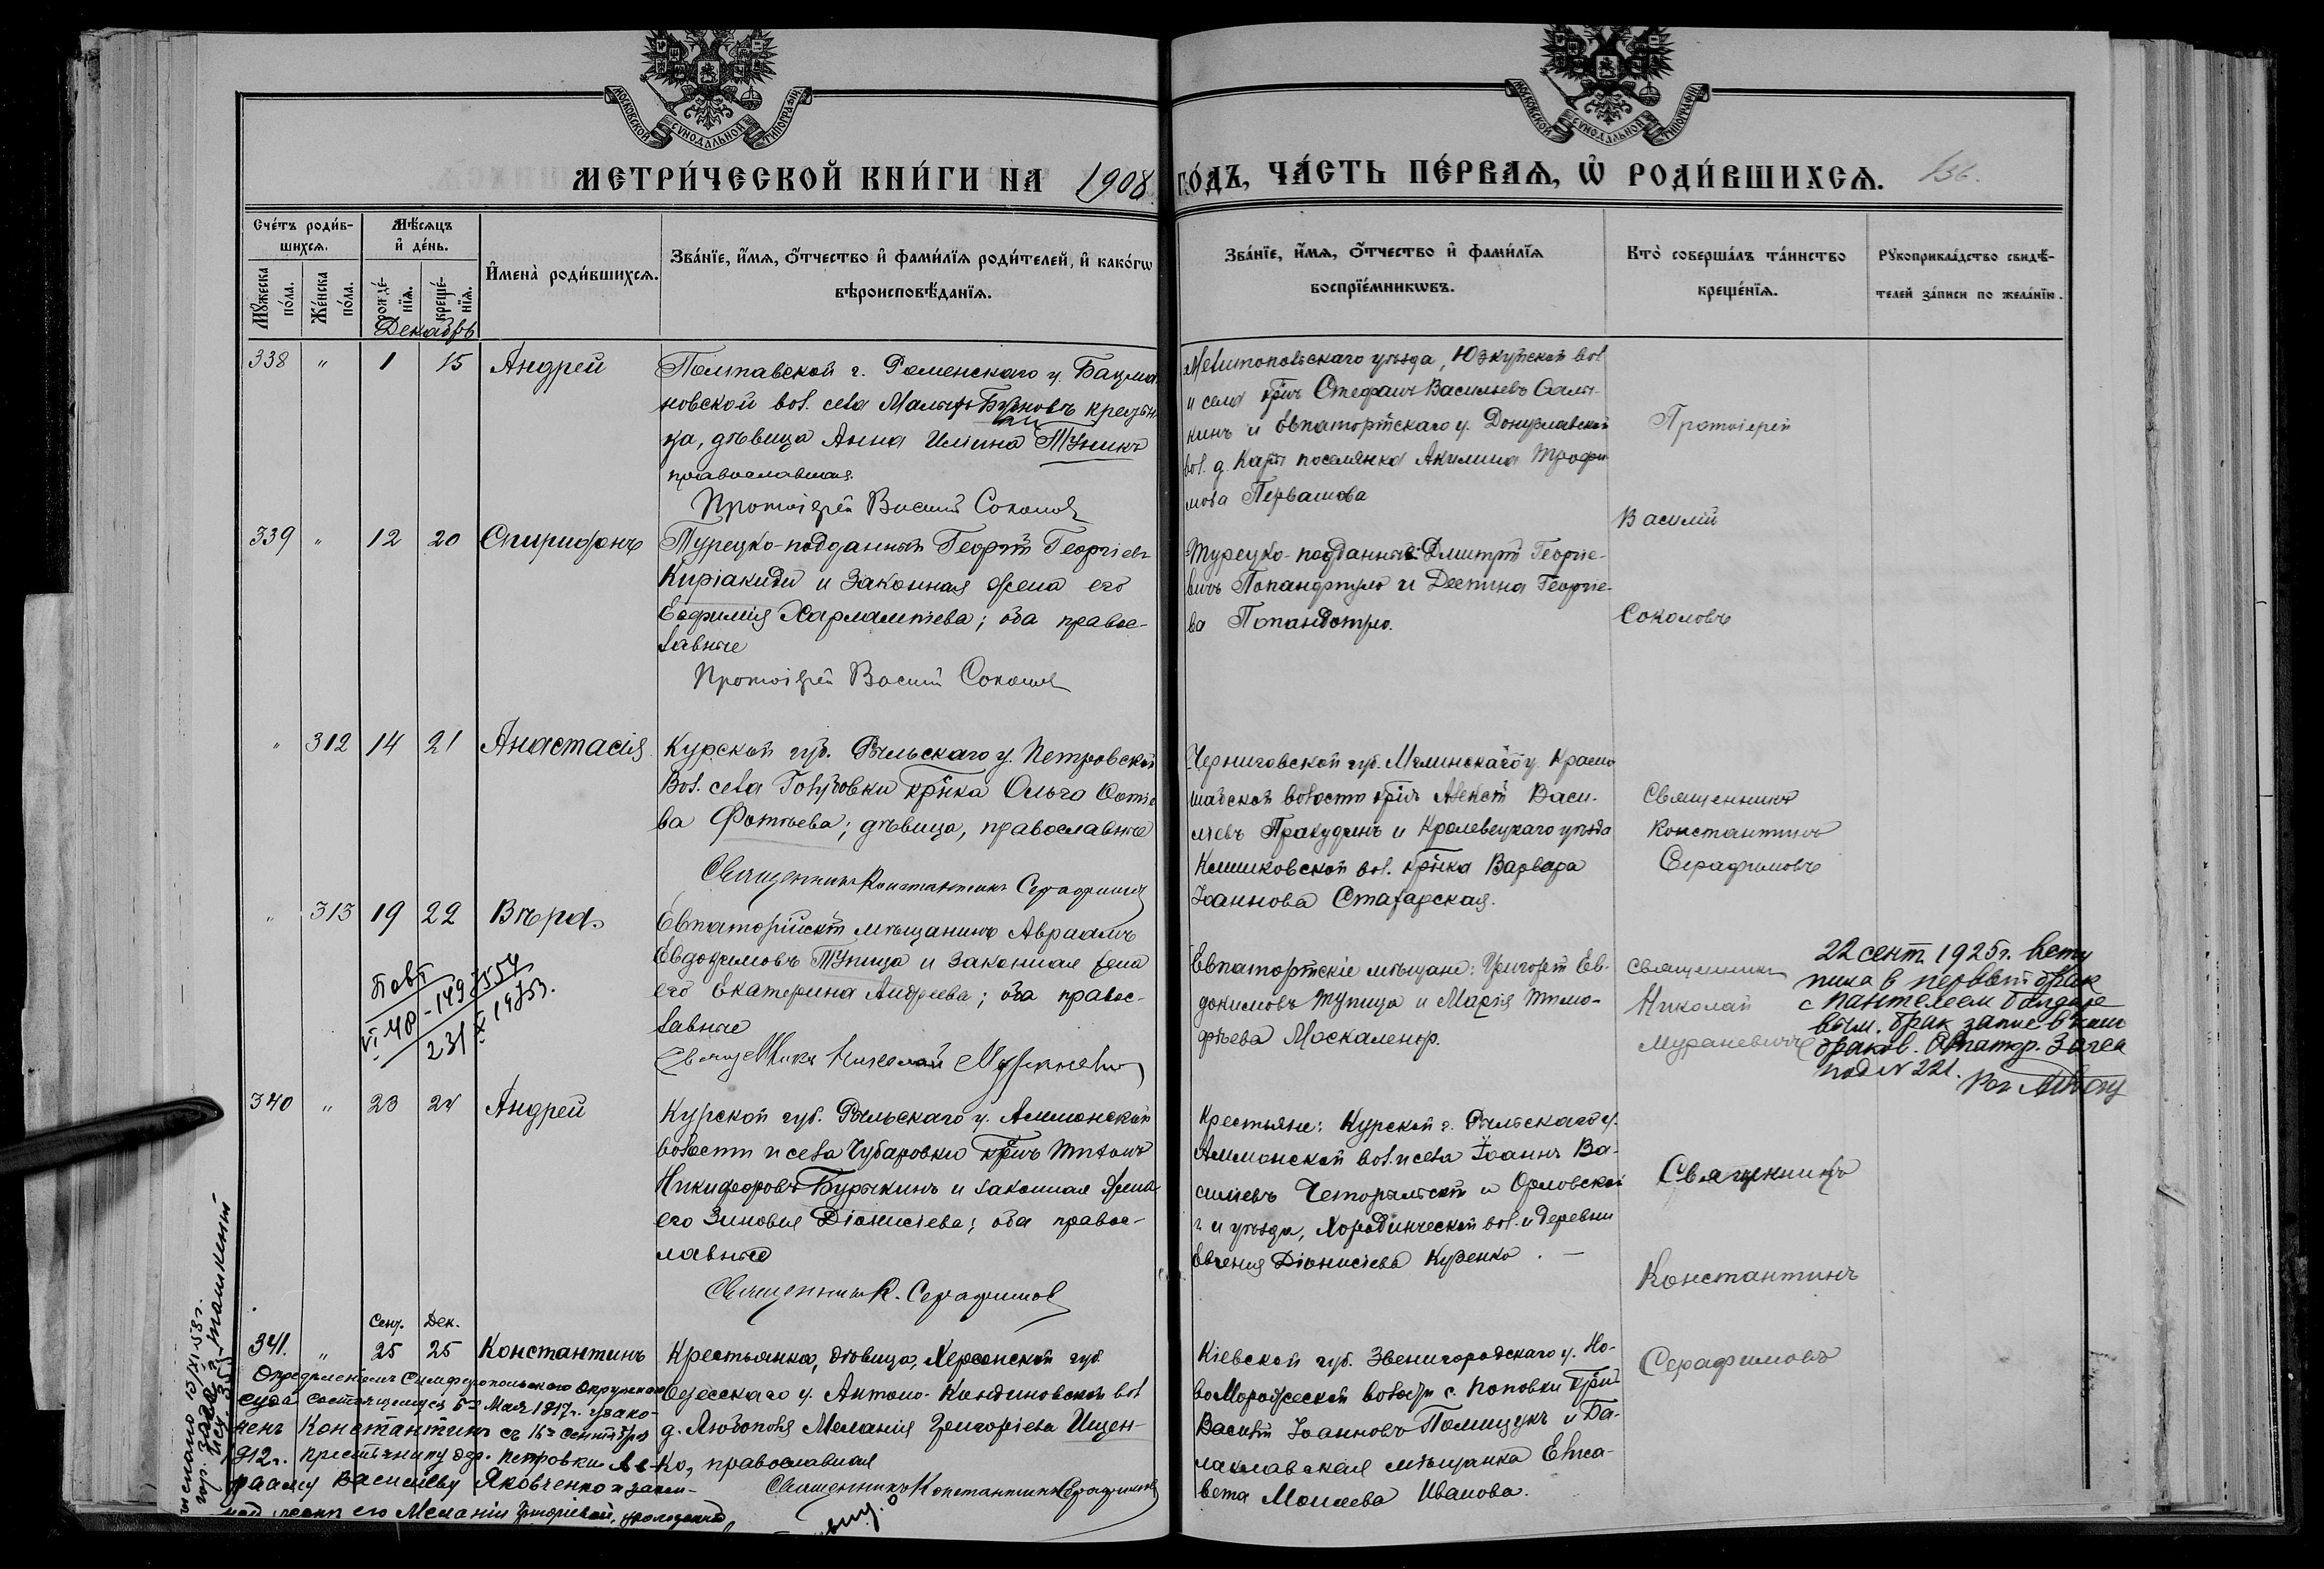 МОСКОВСКОЙ СУНОДАЛЬНОЙ ТИПОГРАФІИ
МОСКОВСКОЙ СУНОДАЛЬНОЙ ТИПОГРАФІИ
МЕТРИ́ЧЕСКОЙ КНИ́ГИ НА 1908 ГО́ДЪ, ЧА́СТЬ ПЕ́РВАѦ, Ѡ҆ РОДИ́ВШИХСѦ. 136.
Сче́тъ роди́в-
шихсѧ.
Мꙋ́жеска по́ла.
Же́нска по́ла.
Мѣ́сѧцъ
и҆ де́нь.
рожде́-
нїѧ.
креще́-
нїѧ.
Декабрь
И҆мена̀ роди́вшихсѧ.
Зва́нїе, и҆́мѧ, ѻ҆́тчество и҆ фами́лїѧ роди́телей, и҆ како́гѡ
вѣроисповѣ́данїѧ.
Зва́нїе, и҆́мѧ, ѻ҆́тчество и҆ фами́лїѧ
воспрїе́мникѡвъ.
Кто̀ соверша́лъ та́инство
креще́нїѧ.
Рꙋкоприкла́дство свидѣ́-
телей за́писи по жела́нїю.
338 " 1 15 Андрей
Полтавской г. Роменскаго у. Бацма-
новской вол. села Малыхъ Бубновъ крестьян-
ка, дѣвица Анна Ильина Тупикъ
православная.
Протоіерей Василій Соколов
Мелитопольскаго уѣзда, Юзкуйской вол
и села кр̃нъ Стефанъ Васильевъ
кинъ и Евпаторійскаго у. Донузлавской
вол. д. поселянка Акилина Трофи-
мова
Протоіерей
Василій
Соколовъ
339 " 12 20 Спиридонъ
Турецко-подданный Георгій Георгіевъ
Киріакиди и законная жена его
Евфимія Харлампіева; оба правос-
лавные
Протоіерей Василий Соколов
Турецко-подданный Дмитрій Георгіе-
вичъ Попандопуло и Деспина Георгіе-
ва Попандопуло.
" 312 14 21 Анастасія
Курской губ. Рыльскаго у. Петровской
вол. села Голубовки кр̃нка Ольга Фотіе-
ва Фотьева; дѣвица, православные
Священникъ Константинъ Серафимов
Черниговской губ. Мглинскаго у. Красно
волости кр̃нъ Алексѣй Васи-
льевъ Пракудинъ и Кролевецкаго уѣзда
вол. кр̃нка Варвара
Іоаннова Статарская.
Священникъ
Константинъ
Серафимовъ
" 313 19 22 Вѣра
Евпаторійскій мѣщанинъ Авраамъ
Евдокимовъ Тупица и законная жена
его Екатерина Андреева; оба правос-
лавные
Священникъ Николай Мураневич
Евпаторійскіе мѣщане: Григорій Ев-
докимовъ Тупица и Марія Тимо-
фѣева Москаленко.
Священникъ
Николай
Мураневичъ
22 сент. 1925г. всту
пила в первый брак
с Пантелеем
вым. брак запис. в кни
браков. Евпатор. Загса
под N 221.
340 " 23 24 Андрей
Курской губ. Рыльскаго у. Аммонской
волости и села Чубаровки кр̃нъ Титъ
Никифоровъ Бурыкинъ и законная жена
его Зиновія Діонисіева; оба правос-
лавные
Священник К. Серафимов
Крестьяне: Курской г. Рыльскаго у.
Аммонской вол. и села Іоаннъ Ва-
сильевъ и Орловской
г. и уѣзда, вол. и деревни
Евгенія Діонисіева Куценко. —
Священникъ
Константинъ
Серафимовъ
Сент. Дек.
341. " 25 25 Константинъ
Крестьянка, дѣвица, Херсонской губ.
Одесскаго у. Антоно-Кодинцовской вол
д. Любополя Меланія Григоріева Ищен-
ко, православная
Священникъ Константинъ Серафимов
Кіевской губ. Звенигородскаго у. Но-
волости с. Поповки кр̃нъ
Василій Іоанновъ Полищукъ и Ба-
лаклавская мѣщанка Елиса-
вета Моисеева Иванова.
Опредѣленіемъ Симферопольскаго Окружнаго
суда состоящемся 5го Мая 1917г. узако-
ненъ Константинъ съ 16го Сентября
912г. крестьянину дер. Петровки Ав-
раамію Васильеву Яковченко и закон-
ной женѣ его Меланіи Григоріевой,